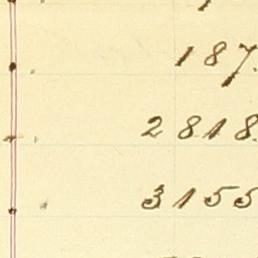 187.
2818.
3155